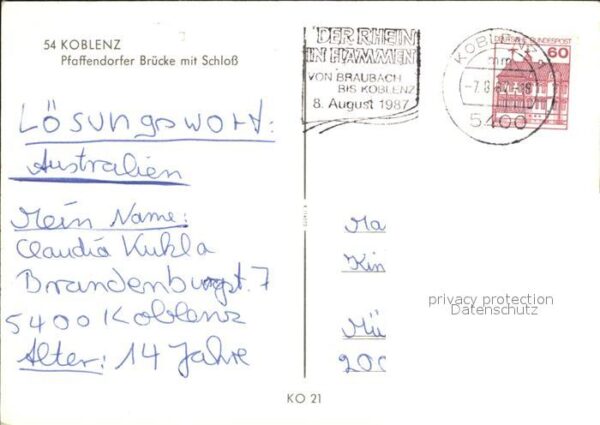 54 KOBLENZ
Pfaffendorfer Brücke mit Schloß
DER RHEIN
IN FLAMMEN
VON BRAUBACH
BIS KOBLENZ
8. August 1987
KOBLENZ 1
mm
5400
DEUTSCHE BUNDESPOST
60
Lösungswort:
Australien
Mein Name:
Claudia Kukla
Brandenburgst. 7
5400 Koblenz
Alter: 14 Jahre
Ma
Kin
Mü
200
privacy protection
Datenschutz
KO 21